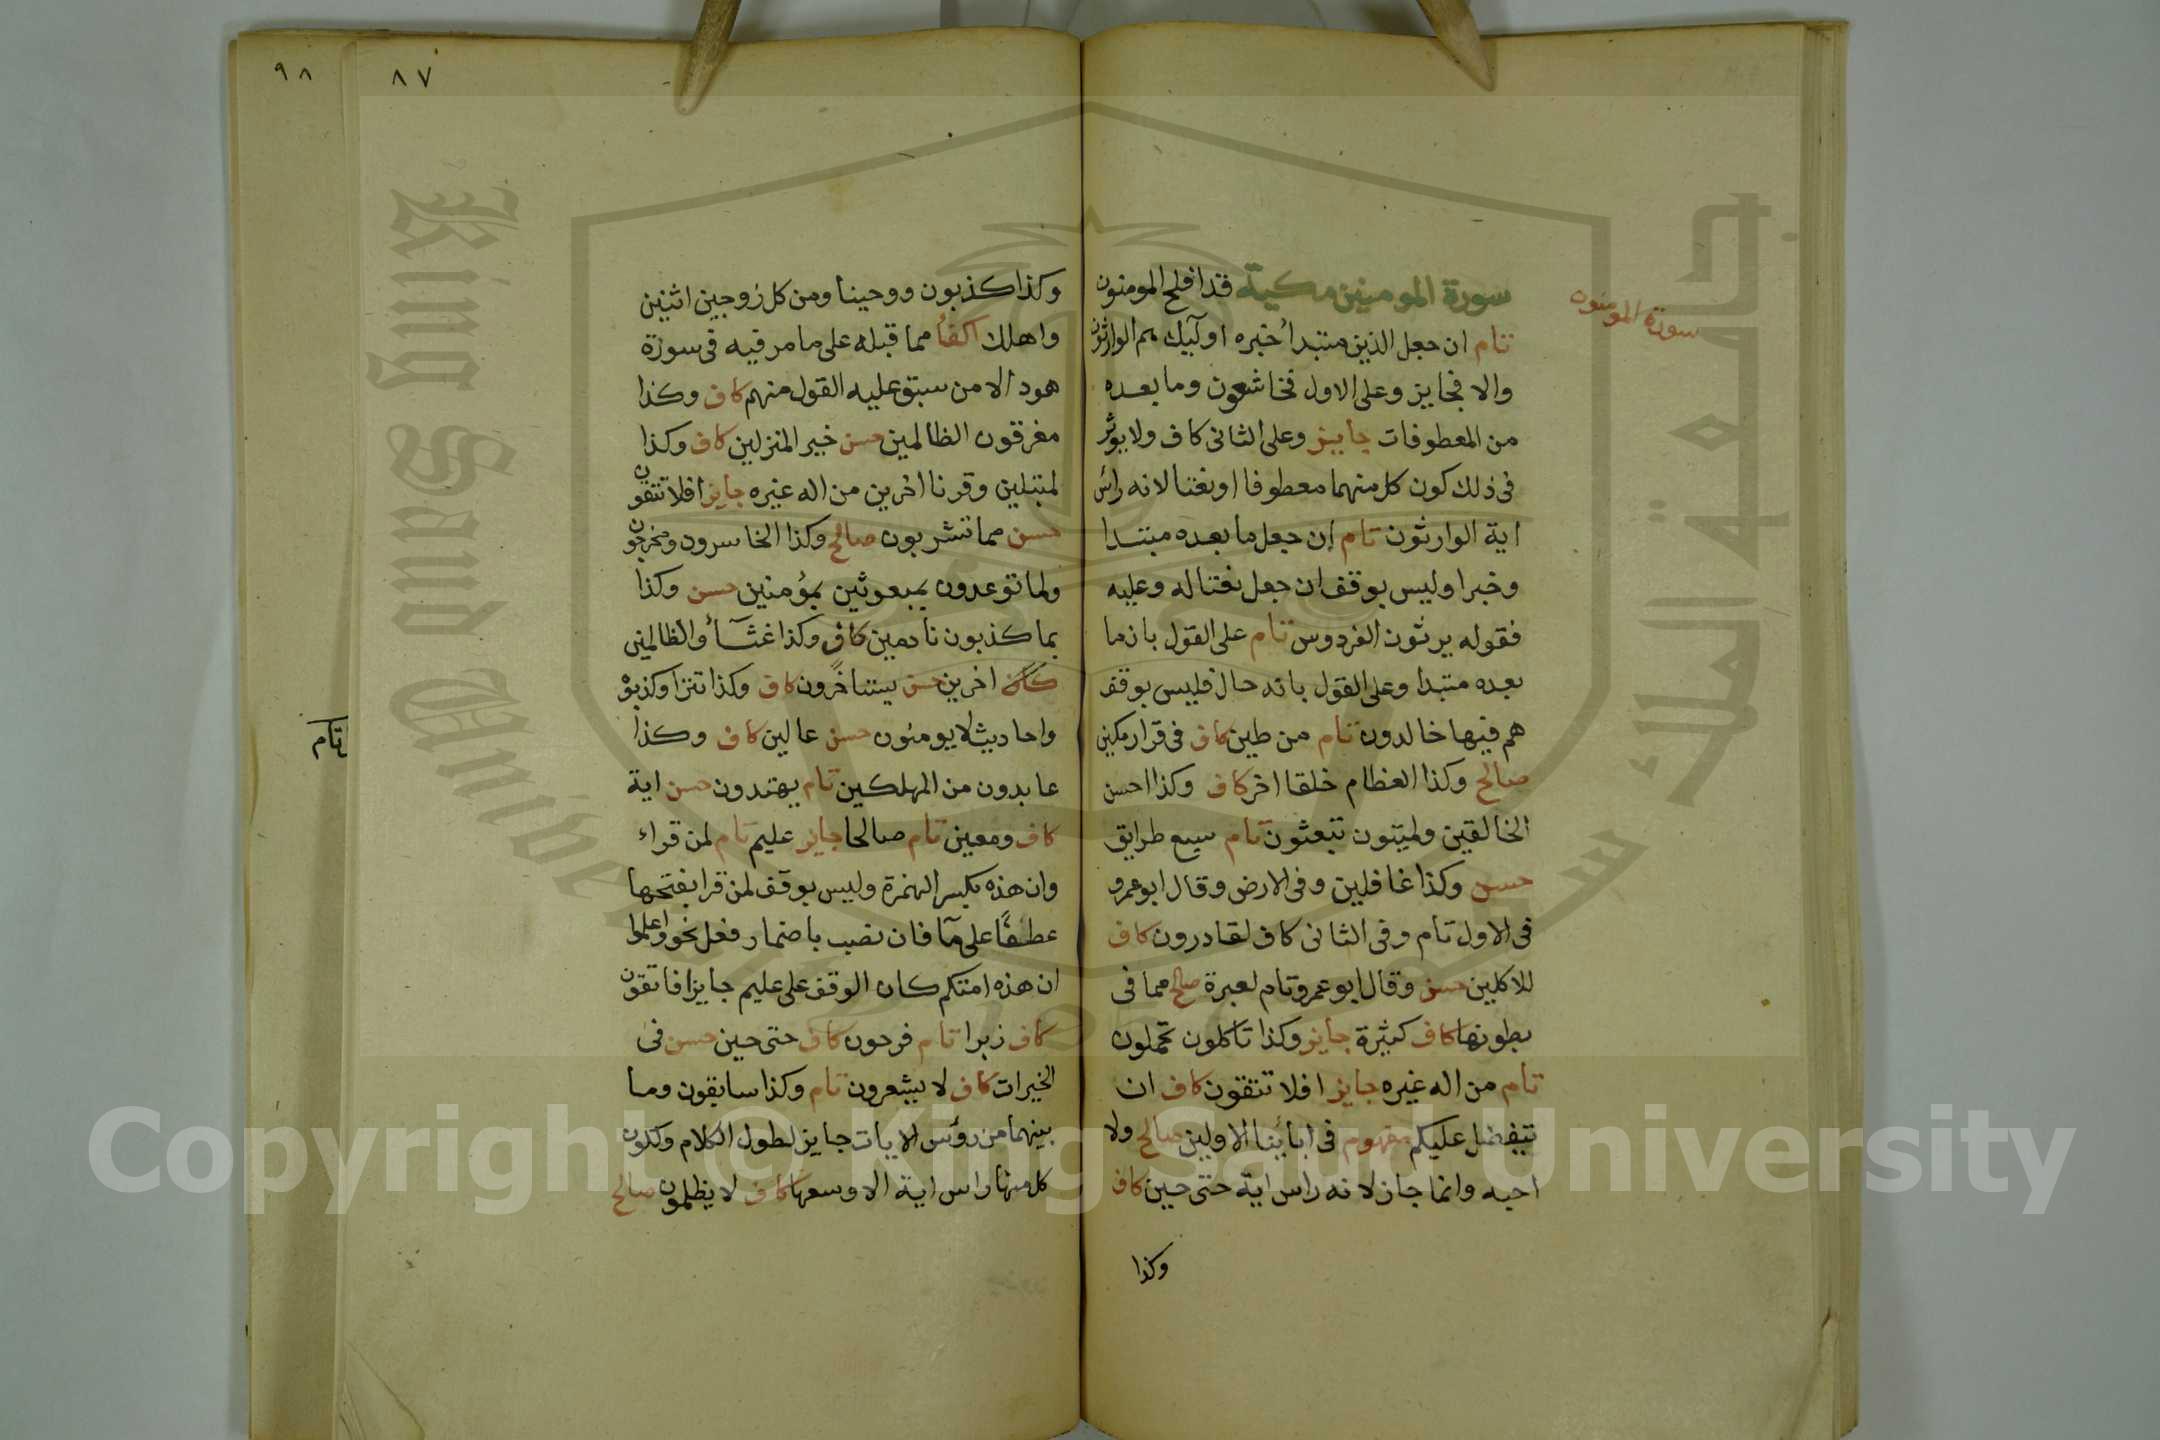 سورة المومنون
سورة المومنين مكية قد افلح المومنون
تام ان جعل الذين مبتدأ خبره اوليك هم الوارثون
والا فجايز وعلى الاول فخاشعون وما بعده
من المعطوفات جايز وعلى الثانى كاف ولا يوثر
فى ذلك كون كل منهما معطوفا او نعتا لانه رأس
اية الوارثون تام إن جعل ما بعده مبتدا
وخبرا وليس بوقف ان جعل نعتا له وعليه
فقوله يرثون الفردوس تام على القول بان ما
بعده مبتدا وعلى القول بانه حال فليس بوقف
هم فيها خالدون تام من طين كاف فى قرار مكين
صالح وكذا العظام خلقا اخر كاف وكذا احسن
الخالقين ولميتون تبعثون تام سبع طرايق
حسن وكذا غافلين وفى الارض وقال ابو عمرو
فى الاول تام وفى الثانى كاف لقادرون كاف
للاكلين حسن وقال ابو عمرو تام لعبرة صالح مما فى
بطونها كاف كثيرة جايز وكذا تاكلون تحملون
تام من اله غيره جايز افلا تتقون كاف ان
يتفضل عليكم مفهوم فى ابائنا الاولين صالح ولا
احبه وانما جاز لانه راس اية حتى حين كاف
وكذا
٨٧
٩٨
وكذا كذبون ووحينا ومن كل زوجين اثنين
واهلك اكفأ مما قبله على ما مر فيه فى سورة
هود الا من سبق عليه القول منهم كاف وكذا
مغرقون الظالمين حسن خير المنزلين كاف وكذا
لمبتلين وقرنا اخرين من اله غيره جايز افلا تتقون
حسن مما تشربون صالح وكذا الخاسرون ومخرجون
ولما توعدون بمبعوثين بمؤمنين حسن وكذا
بما كذبون نادمين كاف وكذا غثآأ والظالمين
كاف اخرين حسن يستاخرون كاف وكذا تترا وكذبوه
واحاديث لا يومنون حسن عالين كاف وكذا
عابدون من المهلكين تام يهتدون حسن اية
كاف ومعين تام صالحا جايز عليم تام لمن قراء
وان هذه بكسر الهمزة وليس بوقف لمن قرا بفتحها
عطفًا على مآ فان نصب باضمار فعل نحو واعلموا
ان هذه امتكم كان الوقف على عليم جايزا فاتقون
كاف زبرا تام فرحون كاف حتى حين حسن فى
الخيرات كاف لا يشعرون تام وكذا سابقون وما
بينهما من رؤس الايات جايز لطول الكلام وكون
كل منها راس اية الا وسعها كاف لا يظلمون صالح
تام
جامعة الملك سعود
King Saud University
Copyright © King Saud University